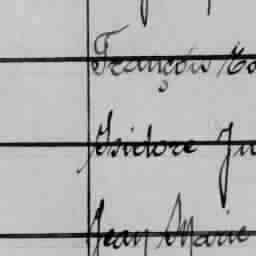 François
Isidore Ju
Jean Marie